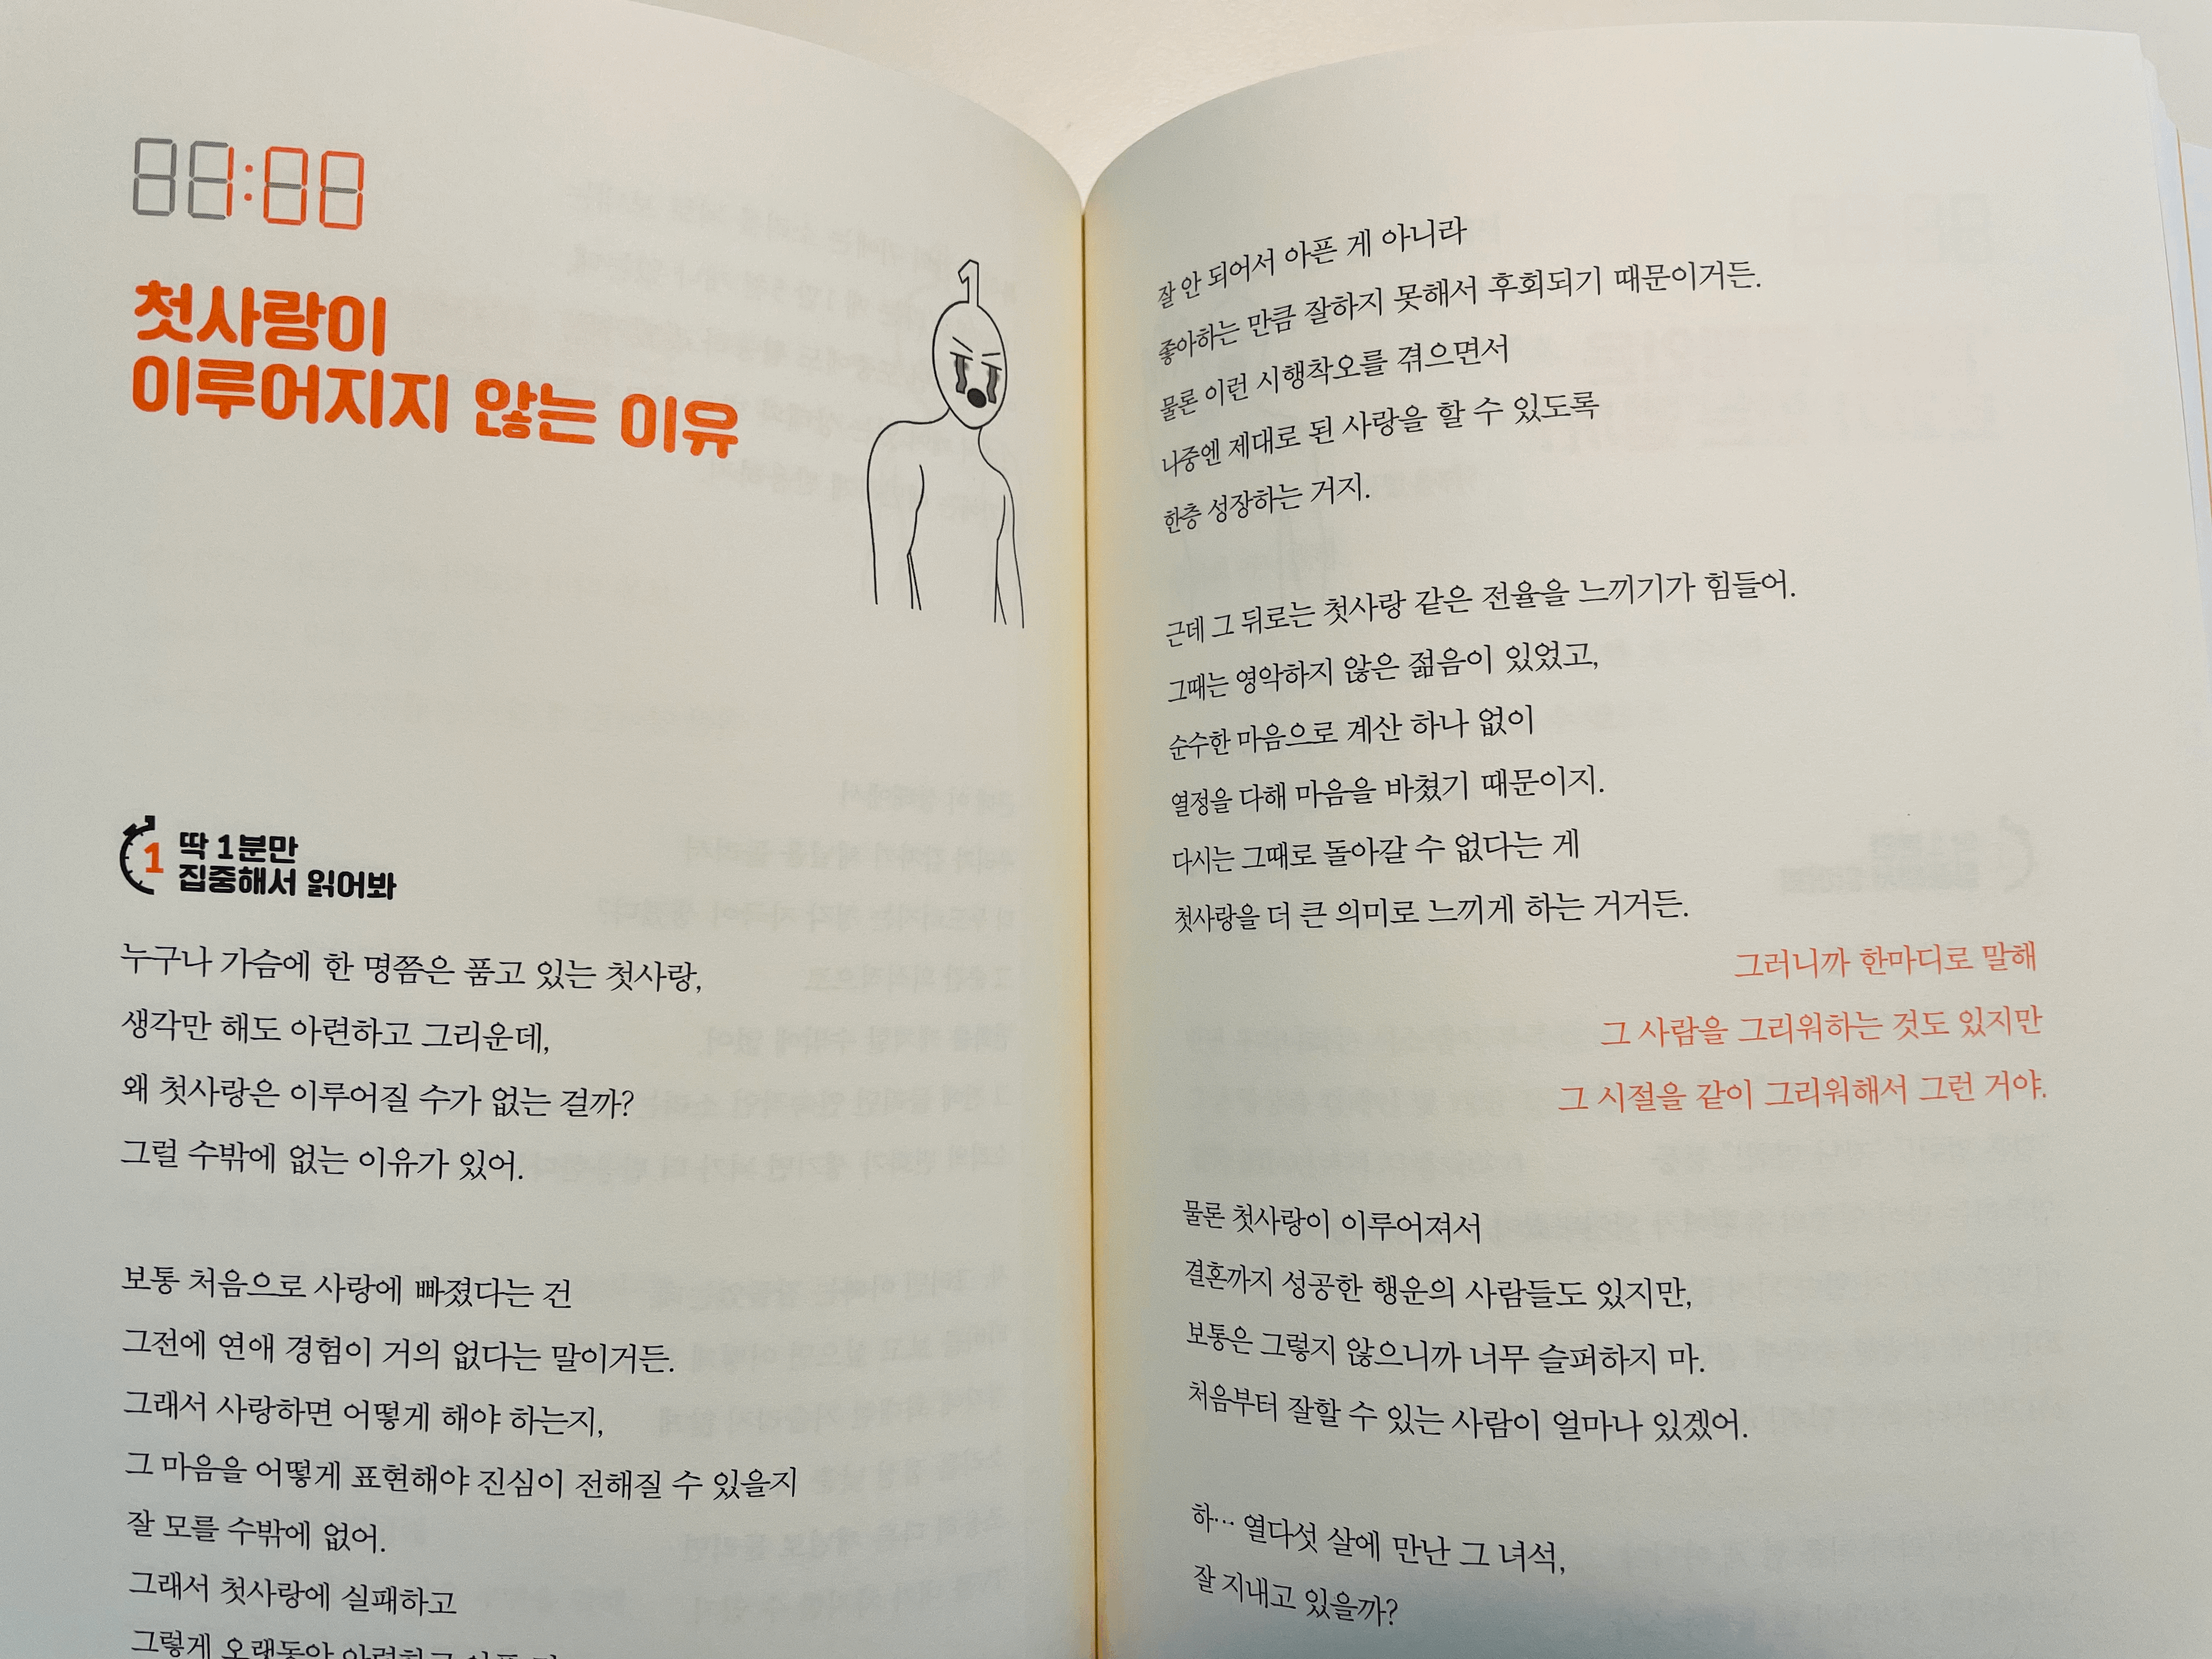 1:00
첫사랑이
이루어지지 않는 이유
1
1
딱 1분만
집중해서 읽어봐
누구나 가슴에 한 명쯤은 품고 있는 첫사랑,
생각만 해도 아련하고 그리운데,
왜 첫사랑은 이루어질 수가 없는 걸까?
그럴 수밖에 없는 이유가 있어.
보통 처음으로 사랑에 빠졌다는 건
그전에 연애 경험이 거의 없다는 말이거든.
그래서 사랑하면 어떻게 해야 하는지,
그 마음을 어떻게 표현해야 진심이 전해질 수 있을지
잘 모를 수밖에 없어.
그래서 첫사랑에 실패하고
그렇게 오랫동안
잘 안 되어서 아픈 게 아니라
좋아하는 만큼 잘하지 못해서 후회되기 때문이거든.
물론 이런 시행착오를 겪으면서
나중엔 제대로 된 사랑을 할 수 있도록
한층 성장하는 거지.
근데 그 뒤로는 첫사랑 같은 전율을 느끼기가 힘들어.
그때는 영악하지 않은 젊음이 있었고,
순수한 마음으로 계산 하나 없이
열정을 다해 마음을 바쳤기 때문이지.
다시는 그때로 돌아갈 수 없다는 게
첫사랑을 더 큰 의미로 느끼게 하는 거거든.
그러니까 한마디로 말해
그 사람을 그리워하는 것도 있지만
그 시절을 같이 그리워해서 그런 거야.
물론 첫사랑이 이루어져서
결혼까지 성공한 행운의 사람들도 있지만,
보통은 그렇지 않으니까 너무 슬퍼하지 마.
처음부터 잘할 수 있는 사람이 얼마나 있겠어.
하… 열다섯 살에 만난 그 녀석,
잘 지내고 있을까?